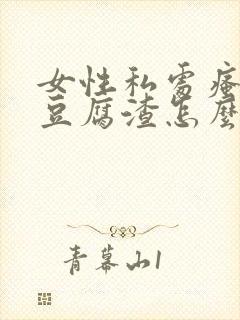 女性私处瘙
豆腐渣怎麼
青幕山1